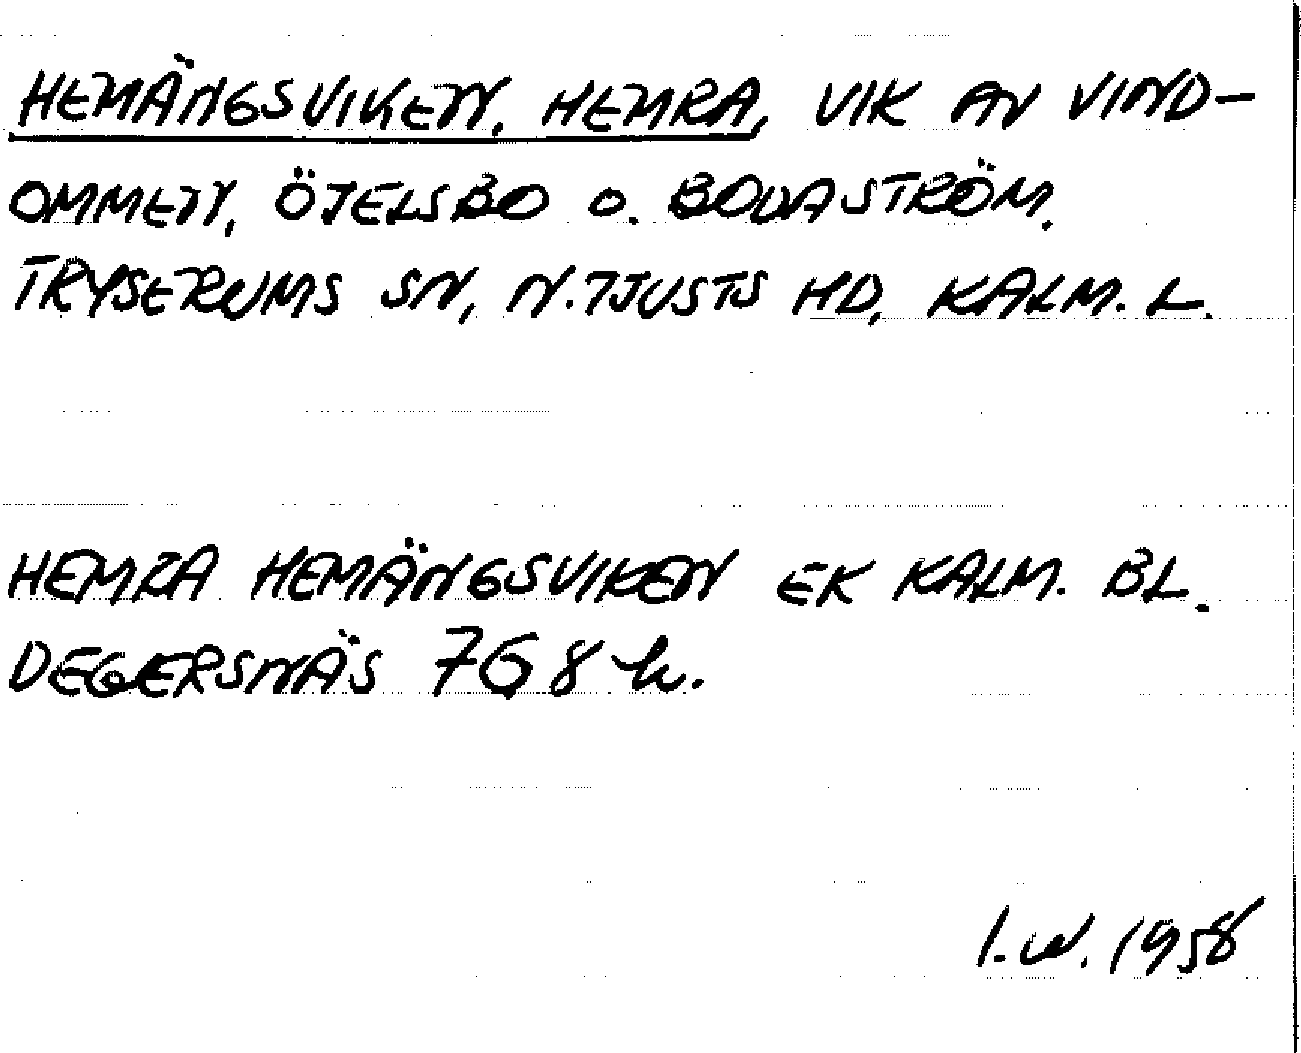 HEMÄNGSVIKEN, HEMRA, VIK AV VIND-
OMMEN, ÖJELSBO O. BODASTRÖM.
TRYSERUMS SN, N. TJUSTS HD, KALM. L.
HEMRA HEMÄNGSVIKEN EK KALM. BL.
DEGERSNÄS 768 h.
I. W. 1958